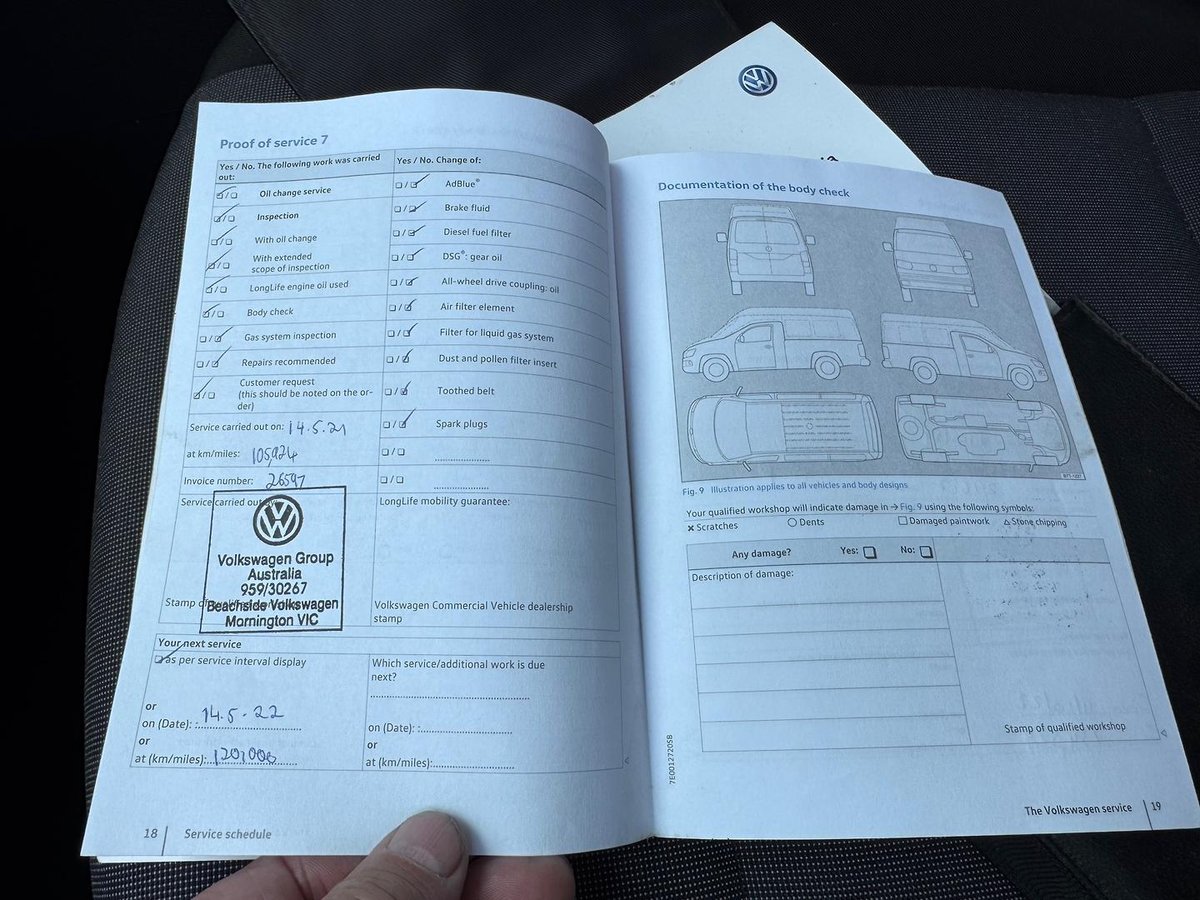 Proof of service 7
Yes / No. The following work was carried
out:
Yes / No. Change of:
Oil change service
AdBlue®
Inspection
Brake fluid
With oil change
Diesel fuel filter
With extended
scope of inspection
DSG®: gear oil
LongLife engine oil used
All-wheel drive coupling: oil
Body check
Air filter element
Gas system inspection
Filter for liquid gas system
Repairs recommended
Dust and pollen filter insert
Customer request
(this should be noted on the or-
der)
Toothed belt
Service carried out on: 14.5.21
Spark plugs
at km/miles: 105,924
Invoice number: 26597
Service carried out
LongLife mobility guarantee:
Volkswagen Group
Australia
959/30267
Beachside Volkswagen
Mornington VIC
Stamp of
Volkswagen Commercial Vehicle dealership
stamp
Your next service
as per service interval display
Which service/additional work is due
next?
or
on (Date): 14.5.22
on (Date):
or
or
at (km/miles): 120,000
at (km/miles):
18 Service schedule
Documentation of the body check
Fig. 9 Illustration applies to all vehicles and body designs
Your qualified workshop will indicate damage in → Fig. 9 using the following symbols:
× Scratches ○ Dents □ Damaged paintwork △ Stone chipping
Any damage? Yes: □ No: □
Description of damage:
Stamp of qualified workshop
7E0012720SB
The Volkswagen service 19